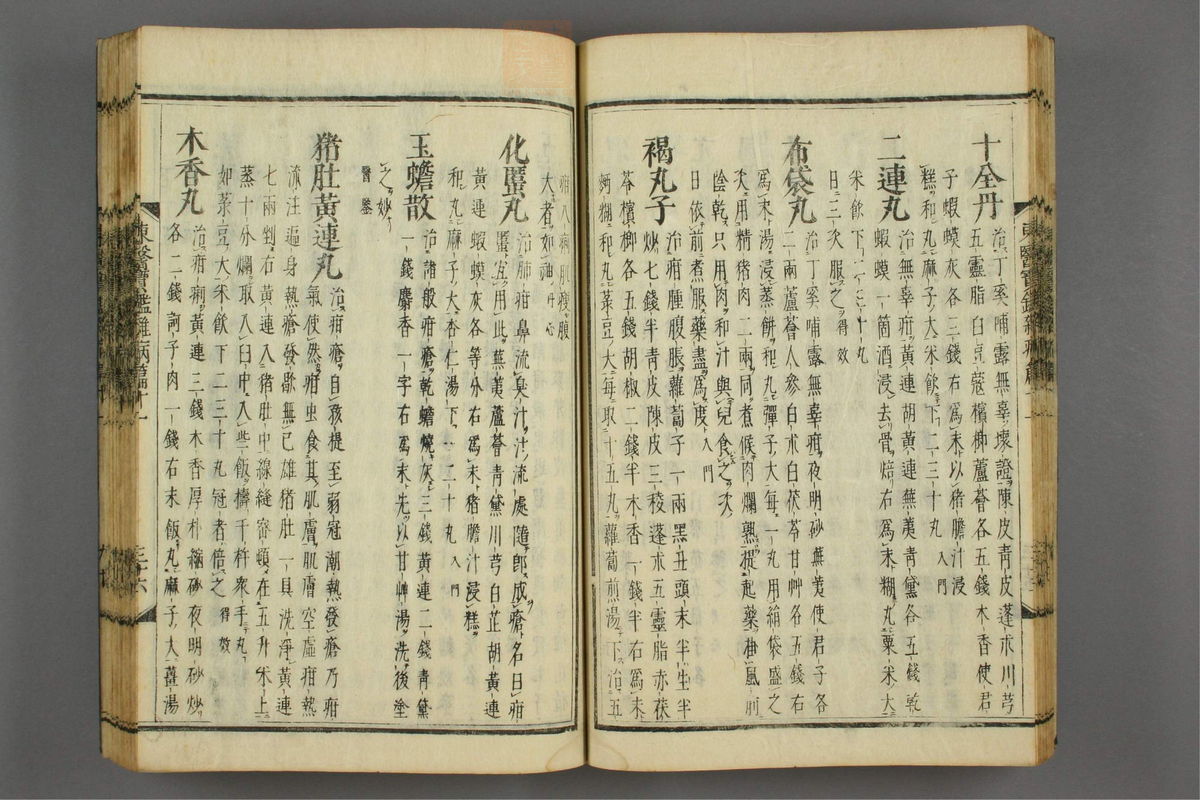 十全丹 治丁奚哺露無辜壞證陳皮青皮蓬朮川芎
五靈脂白豆蔻檳榔蘆薈各五錢木香使君
子蝦蟆灰各三錢右爲末以猪膽汁浸
糕和丸麻子大米飮下二三十丸 入門
二連丸 治無辜疳黃連胡黃連蕪荑青黛各五錢乾
蝦蟆一箇酒浸去骨焙右爲末糊丸粟米大
米飮下二三十丸
日三次服之 得效
布袋丸 治丁奚哺露無辜疳夜明砂蕪荑使君子各
二兩蘆薈人參白朮白茯苓甘艸各五錢右
爲末湯浸蒸餠和丸彈子大每一丸用絹袋盛之
次用精猪肉二兩同煮候肉爛熟提起藥掛風前
陰乾只用肉和汁與兒食之次
日依前煮服藥盡爲度 入門
褐丸子 治疳腫腹脹蘿蔔子一兩黑丑頭末半生半
炒七錢半青皮陳皮三稜蓬朮五靈脂赤茯
苓檳榔各五錢胡椒二錢半木香一錢半右爲末
麪糊和丸菉豆大每取十五丸蘿蔔煎湯下治五
疳八痢肌瘦腹
大者如神 丹心
化䘌丸 治肺疳鼻流臭汁汁流處隨卽成瘡名曰疳
䘌宜用此蕪荑蘆薈青黛川芎白芷胡黃連
黃連蝦蟆灰各等分右爲末猪膽汁浸糕
和丸麻子大杏仁湯下二十丸 入門
玉蟾散 治諸般疳瘡乾蟾燒灰三錢黃連二錢青黛
一錢麝香一字右爲末先以甘艸湯洗後塗
之妙
醫鑒
猪肚黃連丸 治疳瘡自孩提至弱冠潮熱發瘡乃疳
氣使然疳虫食其肌膚肌膚空虛疳熱
流注遍身熱瘡發歇無已雄猪肚一具洗淨黃連
七兩剉右黃連入猪肚中線縫密頓在五升米上
蒸十分爛取入臼中入些飯擣千杵衆手丸
如菉豆大米飮下二三十丸冠者倍之 得效
木香丸 治疳痢黃連三錢木香厚朴縮砂夜明砂炒
各二錢訶子肉一錢右末飯丸麻子大薑湯
東醫寶鑑雜病篇十一